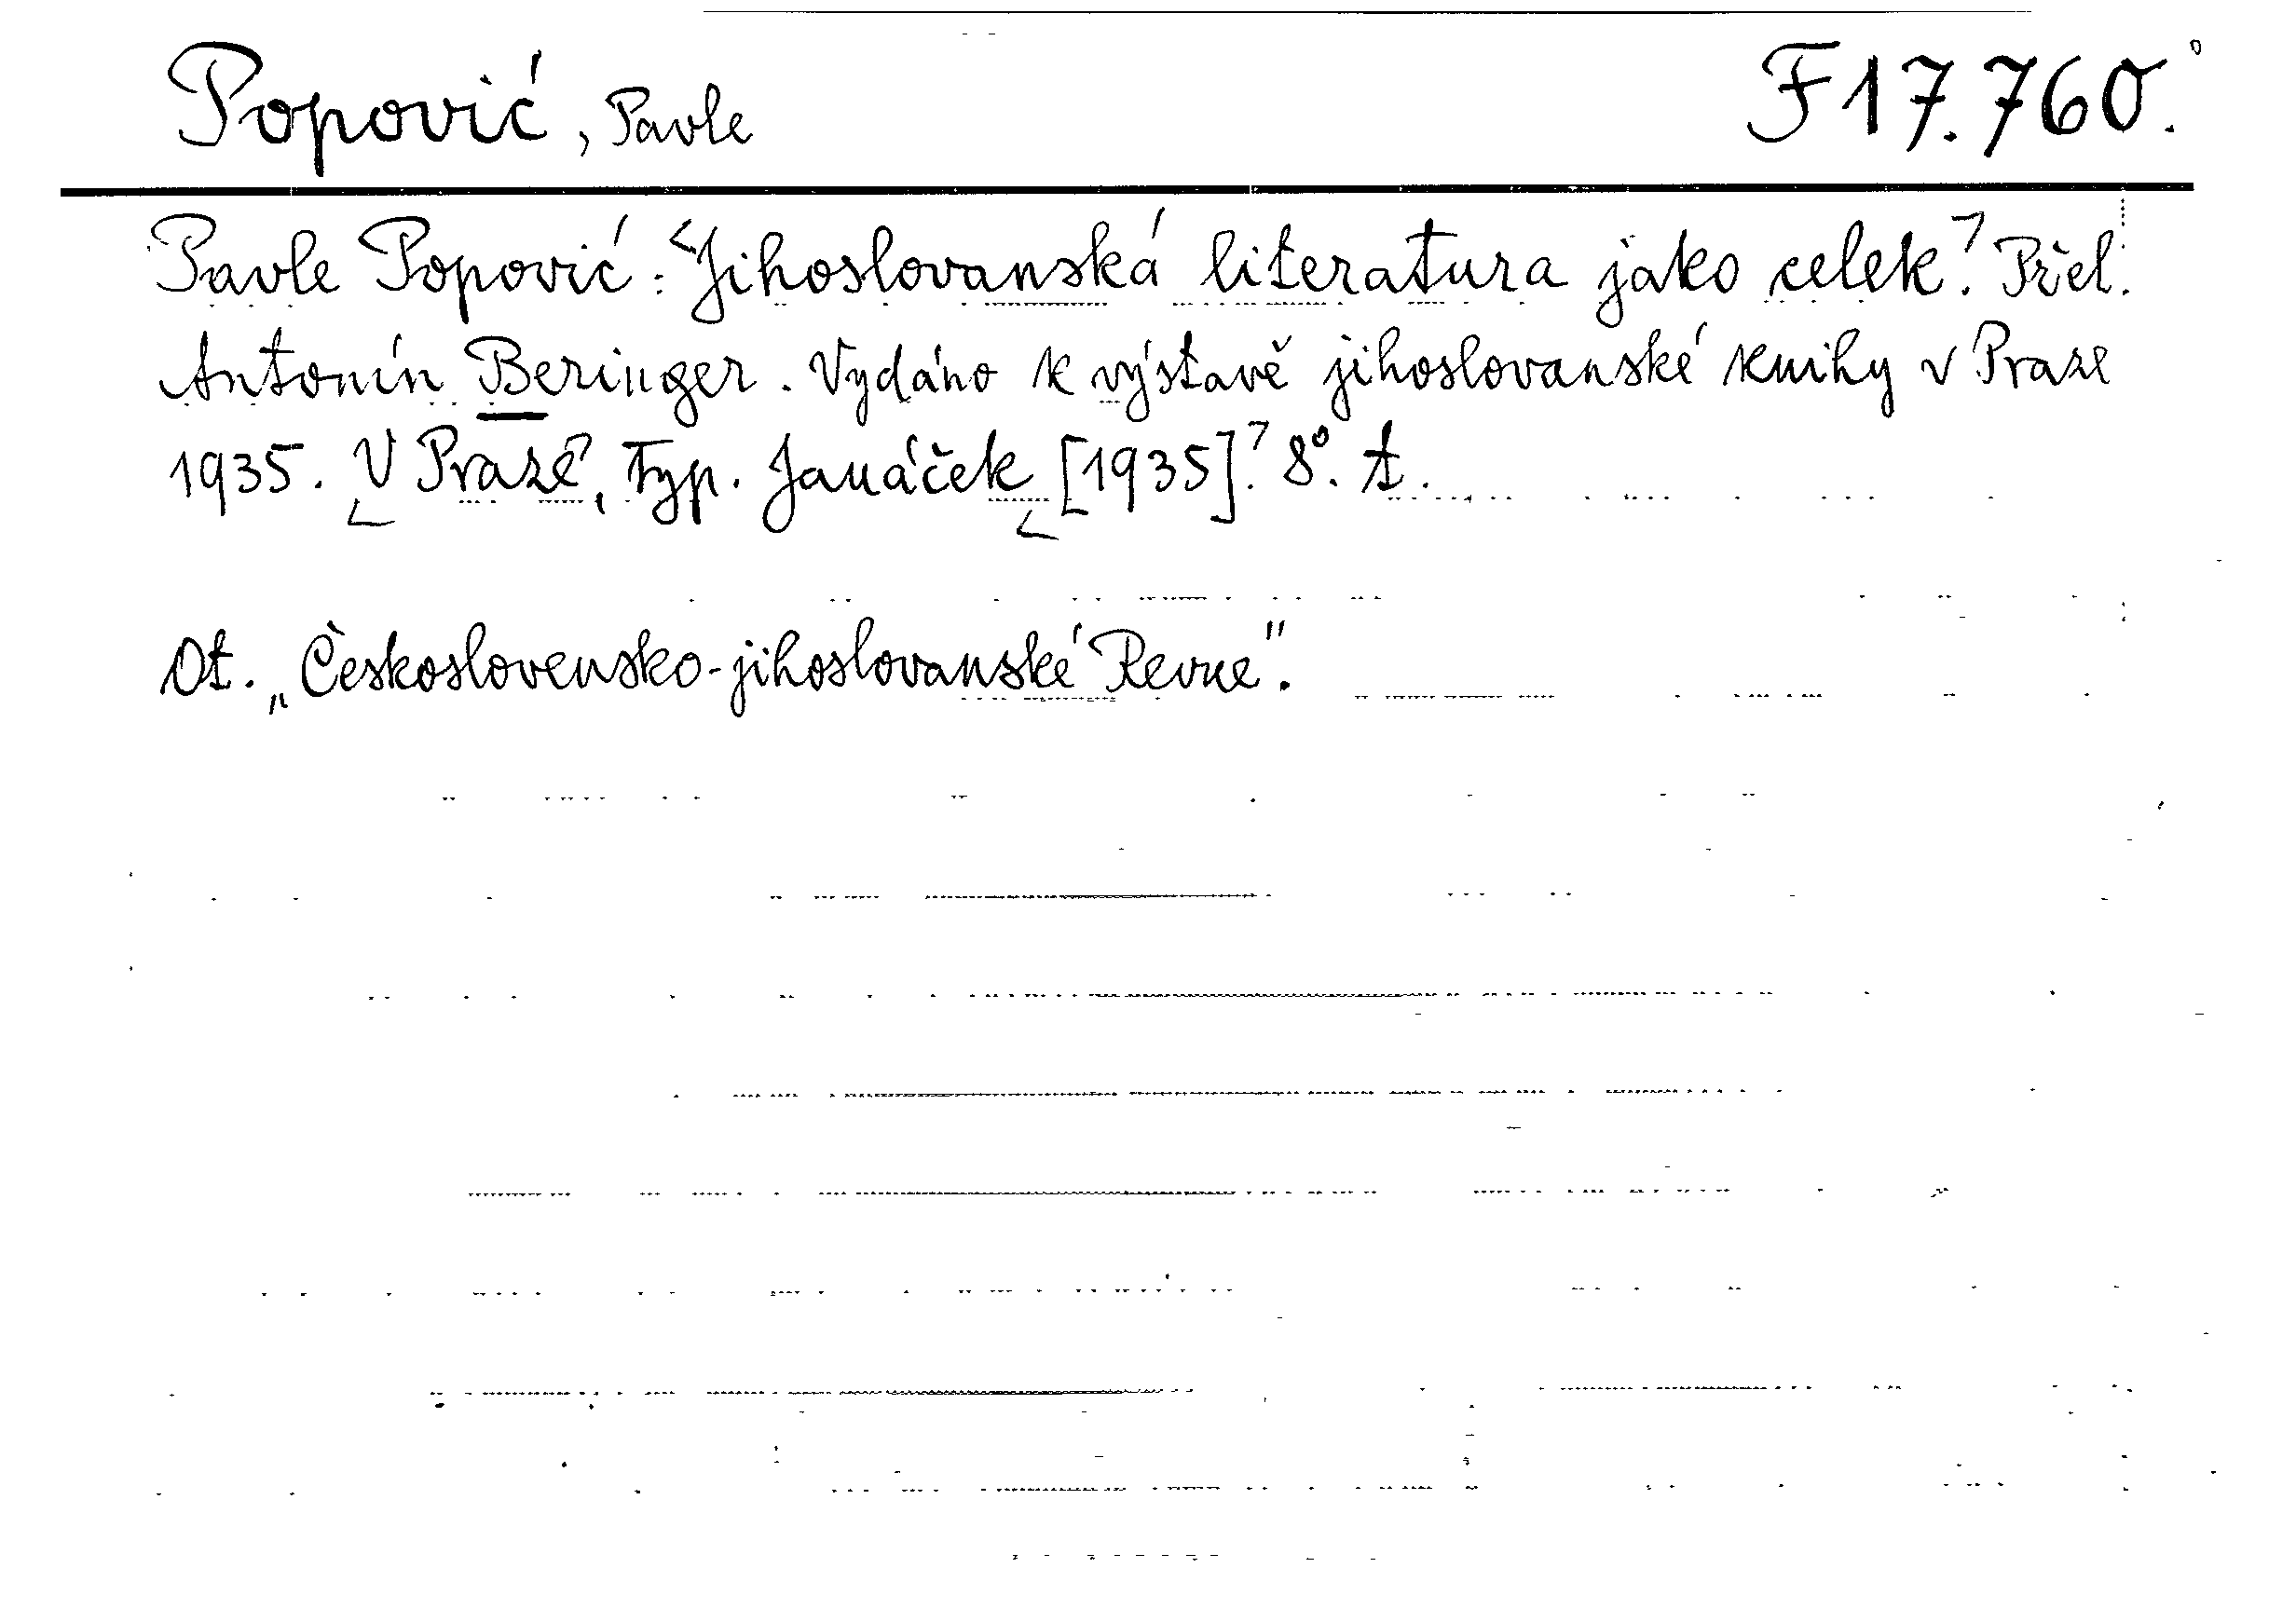 Popović, Pavle F 17.760.
Pavle Popović: Jihoslovanská literatura jako celek. Přel.
Antonín Beringer. Vydáno k výstavě jihoslovanské knihy v Praze
1935. V Praze, Typ. Janáček [1935]. 8°. t.
Ot. „Československo-jihoslovanské Revue".